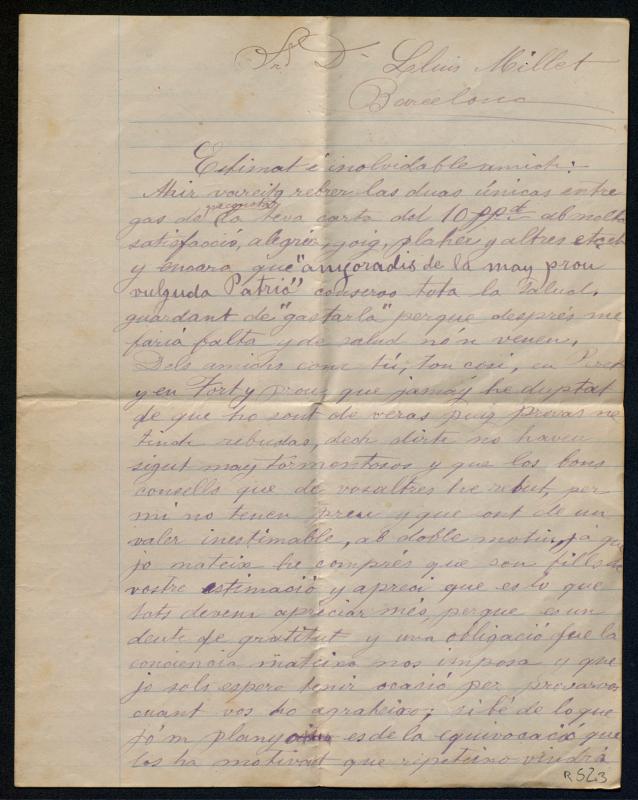 Sr. D. Lluis Millet
Barcelona
Estimat é inolvidable amich:
Ahir vareitg rebrer las duas únicas entre
gas de la teva carta del 10 pp.t ab molta
satisfacció, alegria, joig, plaher y altres
y encara que "anyoradis de la may prou
vulguda Patria" conservo tota la salud,
guardant de "gastarla" perque desprès me
faria falta y de salud no'n venen.
Dels amichs com tú, ton cosi, en
y en Forty prou, que jamáy he duptat
de que ho sont de veras puig provas ne
tinch rebudas, dech dirte no haver
sigut may tormentosos y que los bons
consells que de vosaltres he rebut, per
mi no tenen preu y que sont de un
valer inestimable, ab doble motiu, já que
jo mateix he comprés que son fills de
vostre estimació y apreci que es lo que
tots devem apreciar més, perque es un
deute de gratitut y una obligació que la
conciencia mateixa nos imposa y que
jo sols espero tenir ocasió per provarvos
cuant vos ho agraheixo; si bé de lo que
jó'm planyo es de la equivocació que
los ha motivat que
R 523